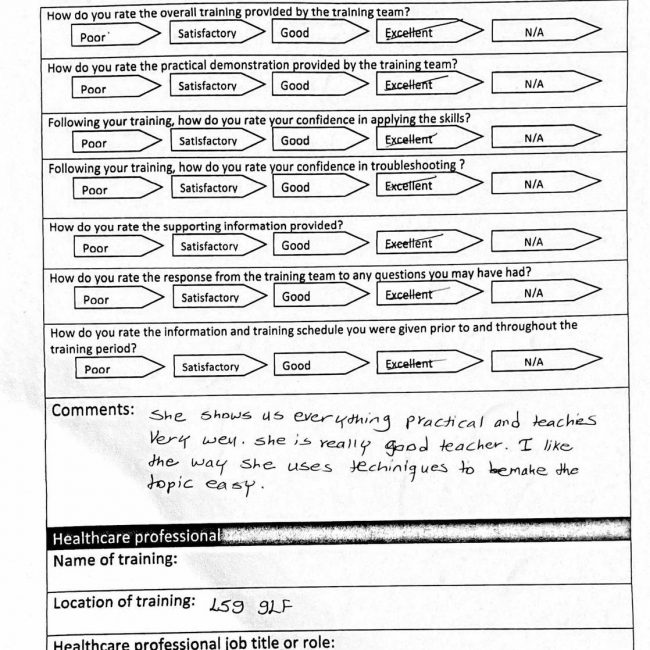 How do you rate the overall training provided by the training team?
Poor Satisfactory Good Excellent N/A
How do you rate the practical demonstration provided by the training team?
Poor Satisfactory Good Excellent N/A
Following your training, how do you rate your confidence in applying the skills?
Poor Satisfactory Good Excellent N/A
Following your training, how do you rate your confidence in troubleshooting ?
Poor Satisfactory Good Excellent N/A
How do you rate the supporting information provided?
Poor Satisfactory Good Excellent N/A
How do you rate the response from the training team to any questions you may have had?
Poor Satisfactory Good Excellent N/A
How do you rate the information and training schedule you were given prior to and throughout the
training period?
Poor Satisfactory Good Excellent N/A
Comments: She shows us everything practical and teaches
Very well. she is really good teacher. I like
the way she uses techiniques to make the
topic easy.
Healthcare professional
Name of training:
Location of training: LS9 9LF
Healthcare professional job title or role: